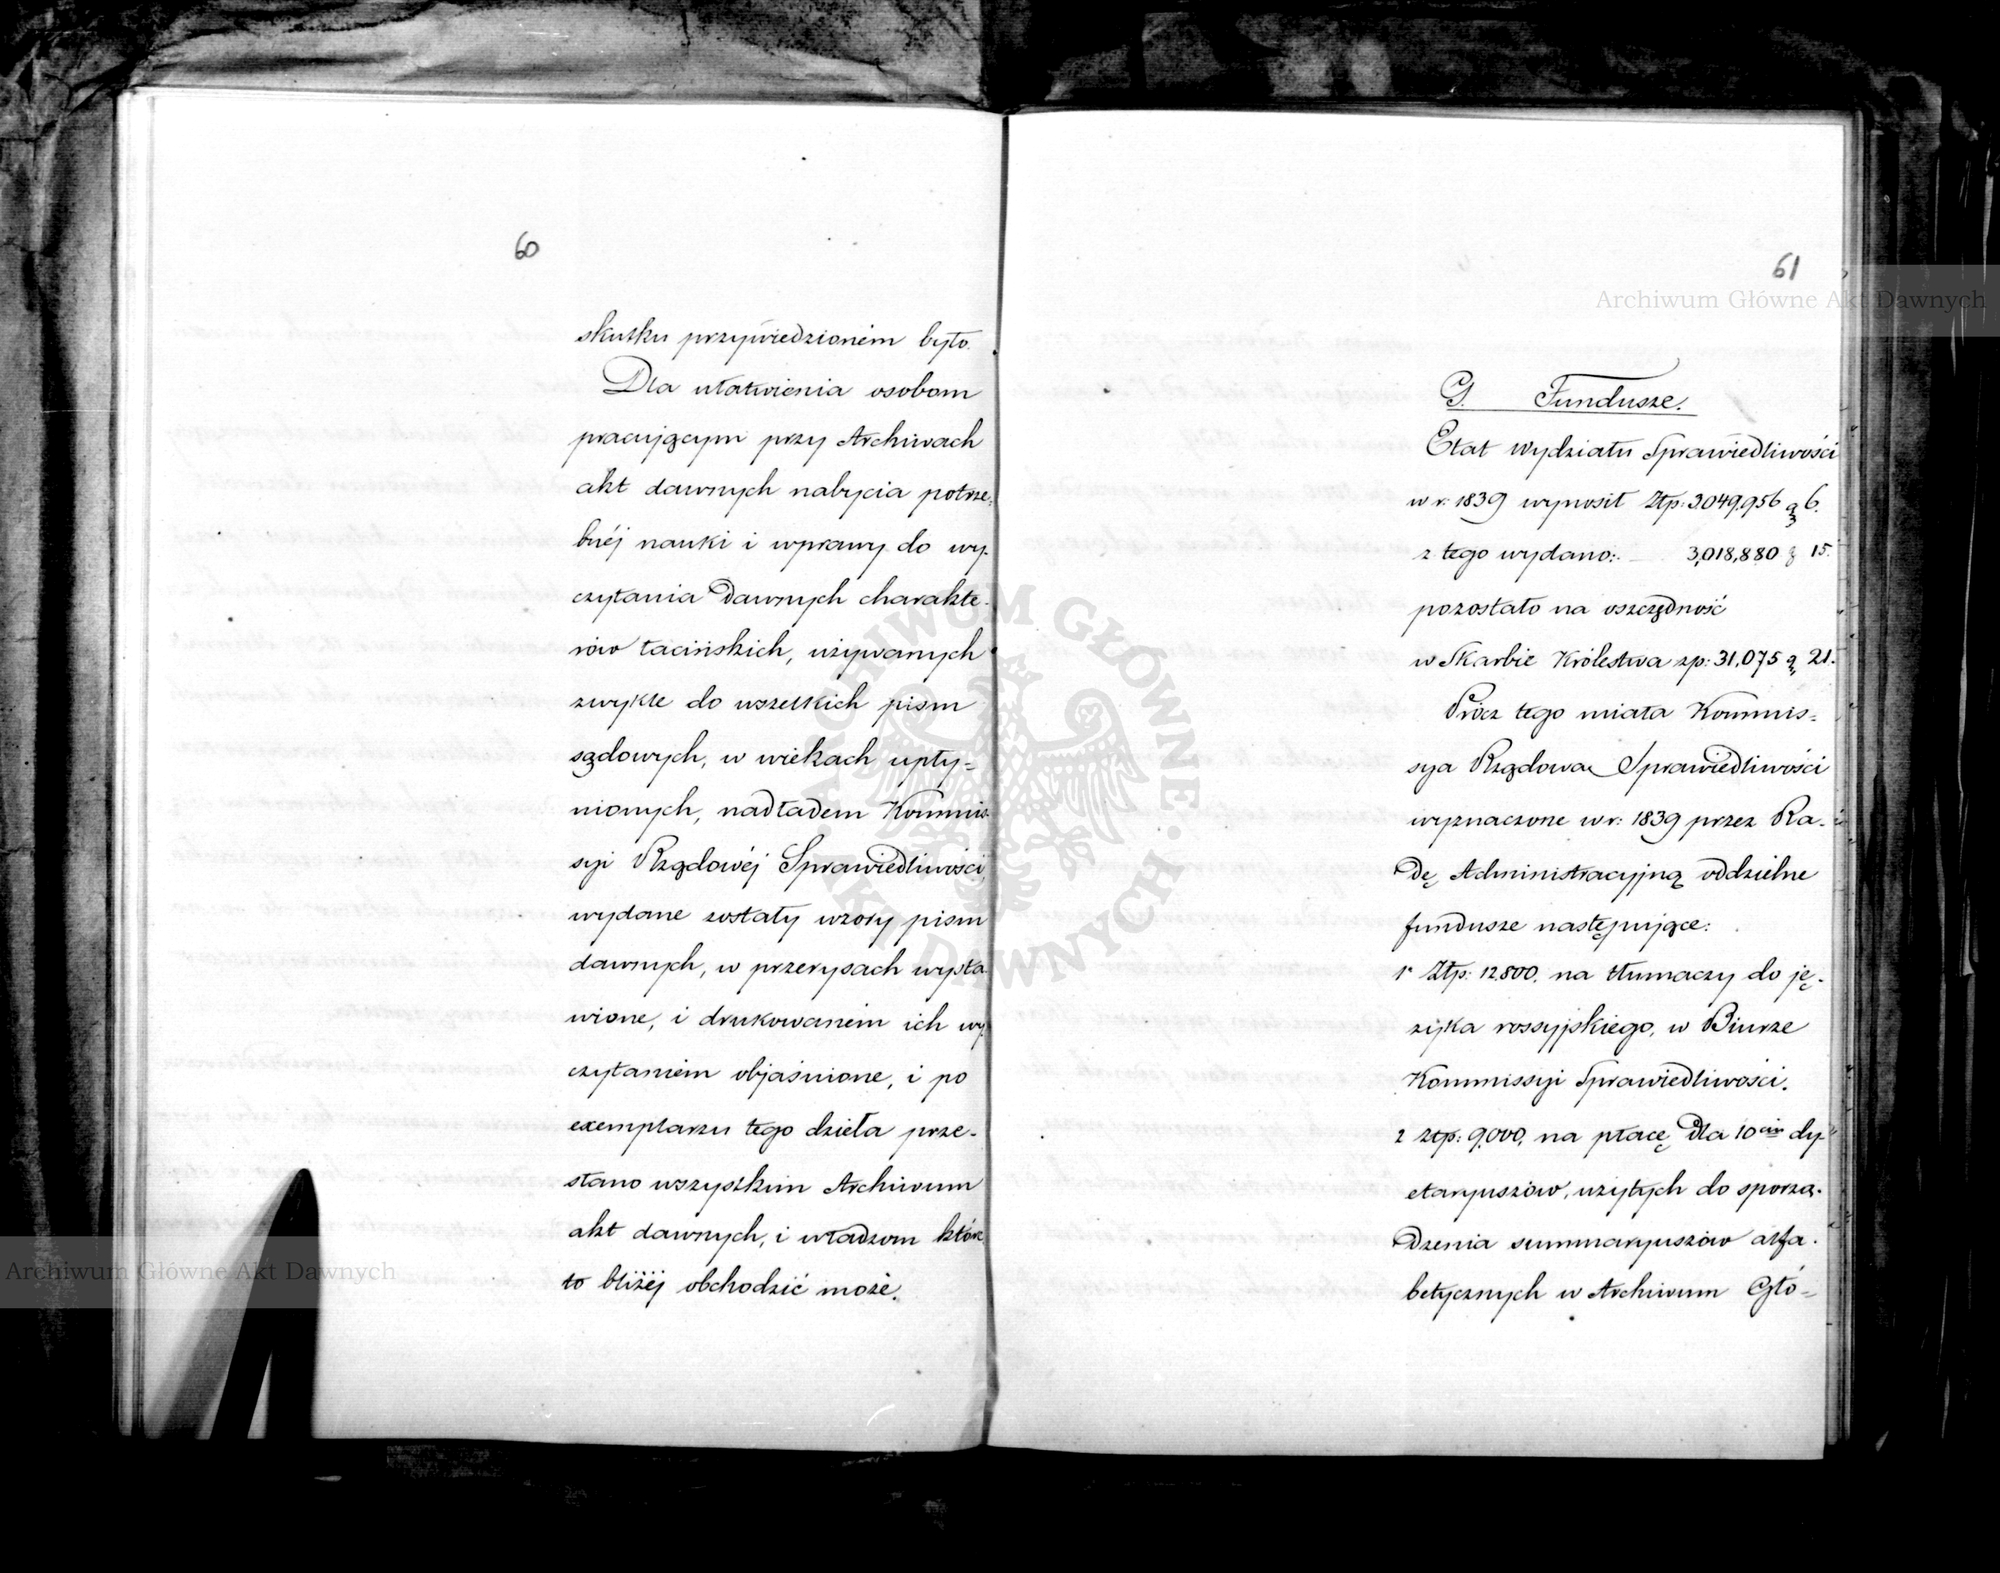 60
skutku przywiedzioném było.
Dla ułatwienia osobom
pracującym przy Archiwach
akt dawnych nabycia potrze-
bnéj nauki i wprawy do wy-
czytania dawnych charakte-
rów łacińskich, używanych
zwykle do wszelkich pism
sądowych, w wiekach upły-
nionych, nadkładem Kommis-
syi Rządowéj Sprawiedliwości,
wydane zostały wzory pism
dawnych, w przerysach wysta
wione, i drukowaniem ich wy-
czytaniem objaśnione, i po
exemplarzu tego dzieła prze-
słano wszystkim Archiwum
akt dawnych, i władzom które
to bliżéj obchodzić może.
61
G. Fundusze.
Etat Wydziału Sprawiedliwości
w r: 1839 wynosił Złp: 3.049.956 g 6.
z tego wydano: — 3,018,880 g 15.
pozostało na oszczędność
w Skarbie Królestwa zp: 31,075 g 21.
Prócz tego miała Kommis-
sya Rządowa Sprawiedliwości
wyznaczone w r: 1839 przez Ra-
dę Administracyjną oddzielne
fundusze następujące:
1° Złp: 12.800. na tłumaczy do ję-
zyka rossyjskiego, w Biurze
Kommissyi Sprawiedliwości.
2 Złp: 9.000, na płacę dla 10ciu dy-
etaryuszów, użytych do sporzą-
dzenia summaryuszów alfa-
betycznych w Archiwum Głó-
Archiwum Główne Akt Dawnych
Archiwum Główne Akt Dawnych
ARCHIWUM GŁÓWNE · AKT DAWNYCH ·